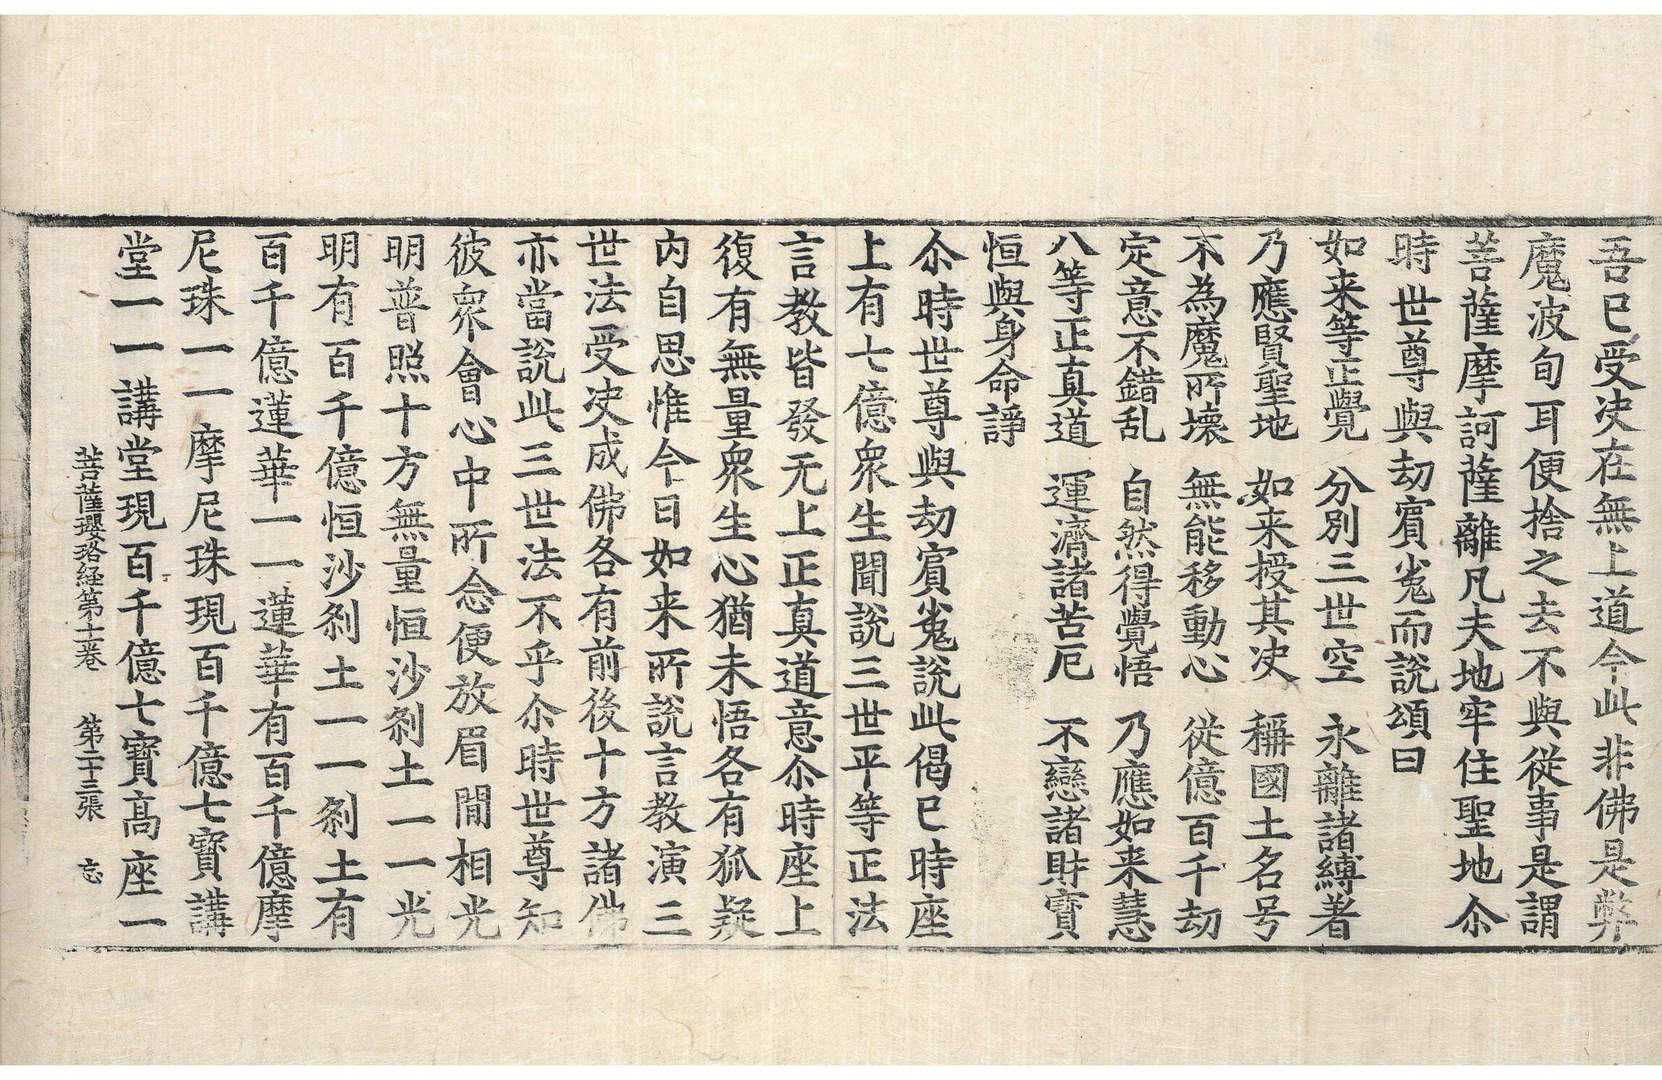 吾已受决在無上道今此非佛是弊
魔波旬耳便捨之去不與從事是謂
菩薩摩訶薩離凡夫地牢住聖地尒
時世尊與劫賔㝹而說頌曰
如来等正覺　分別三世空　永離諸縛著
乃應賢聖地　如来授其决　稱國土名号
不為魔所壞　無能移動心　從億百千劫
定意不錯乱　自然得覺悟　乃應如来慧
八等正真道　運濟諸苦厄　不戀諸財寶
恒與身命諍
尒時世尊與劫賔㝹說此偈已時座
上有七億衆生聞說三世平等正法
言教皆發无上正真道意尒時座上
復有無量衆生心猶未悟各有狐疑
内自思惟今日如来所說言教演三
世法受决成佛各有前後十方諸佛
亦當說此三世法不乎尒時世尊知
彼衆會心中所念便放眉間相光
明普照十方無量恒沙刹土一一光
明有百千億恒沙刹土一一刹土有
百千億蓮華一一蓮華有百千億摩
尼珠一一摩尼珠現百千億七寶講
堂一一講堂現百千億七寶高座一
菩薩瓔珞経第十卷　第二十三張　忘